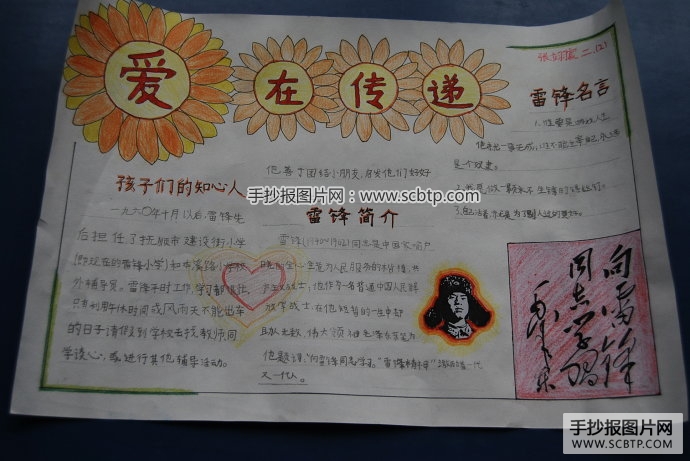 爱在传递
张 二.(2)
雷锋名言
1.
是个奴隶。
2.我是做一颗永不生锈的螺丝钉。
3.自己活着,就是为了别人过的更美好。
他善于团结小朋友,启发他们好好
孩子们的知心人
一九六〇年十月以后,雷锋先
后担任了抚顺市建设街小学
(即现在的雷锋小学)和本溪路小学校
外辅导员。雷锋平时工作、学习都很紧张,
只有利用午休时间或风雨天不能出车
的日子请假到学校去找教师、同
学谈心,或进行其他辅导活动。
雷锋简介
雷锋(1940~1962)同志是中国家喻户
晓的全心全意为人民服务的
共产主义战士,他作为一名普通中国人民解
放军战士,在他短暂的一生中却
助人无数,伟大领袖毛泽东
他题词:“向雷锋同志学习。”“雷锋精神”激励着一代
又一代人。
向雷锋
同志学习
毛泽东
手抄报图片网:www.scbtp.com
手抄报图片网
WWW.SCBTP.COM